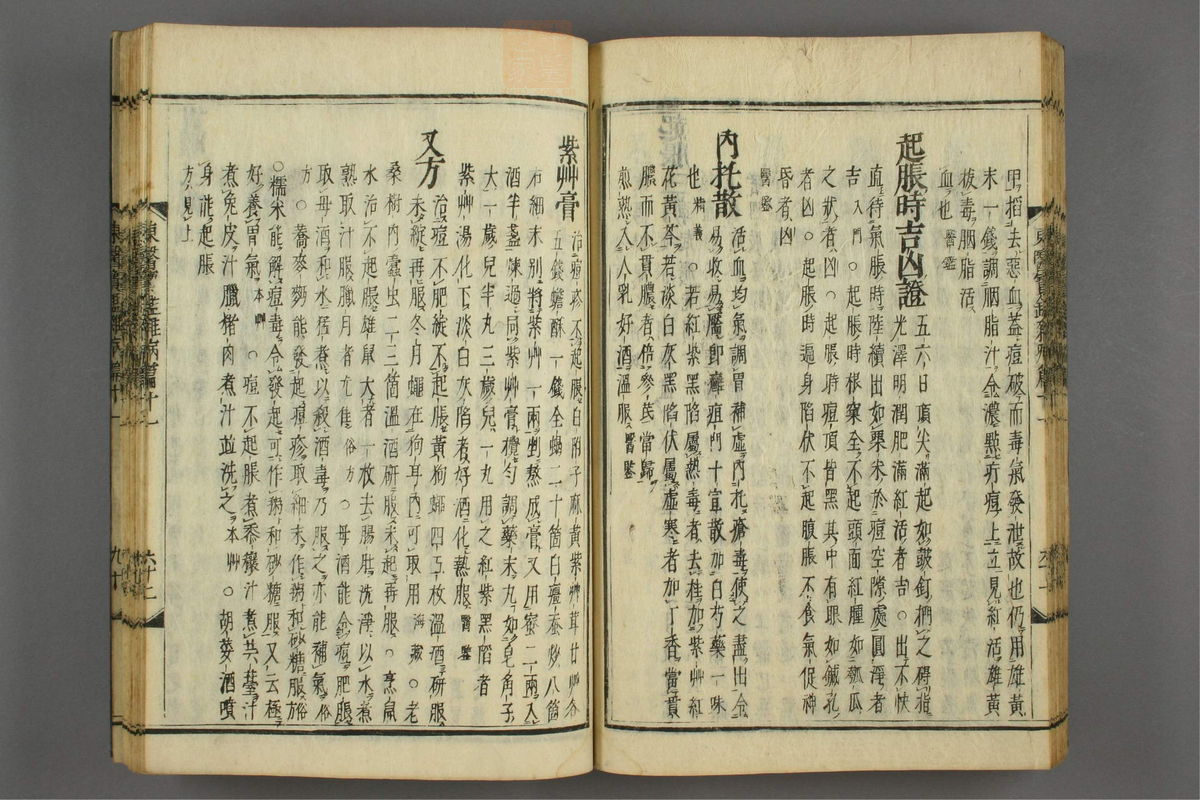 甲搯去惡血蓋痘破令而毒氣發泄故也仍用雄黃
末一錢調胭脂汁令濃點疔痘上立見紅活雄黃
拔毒胭脂活
血也醫鑑
起脹時吉凶證五六日頂尖滿起如皷釘捫之碍指
光澤明潤肥滿紅活者吉○出不快
直待氣脹時陸續出如粟米於痘空隙處圓淨者
吉入門○起脹時根窠全不起頭面紅腫如瓠瓜
之狀者凶○起脹時痘頂皆黑其中有眼如鍼孔
者凶○起脹時遍身陷伏不起腹脹不食氣促神
昏者凶
醫鑑
內托散活血均氣調胃補虛內托瘡毒使之盡出令
易收易靨卽癰疽門十宣散加白芍藥一味
也精義○若紅紫黑陷屬熱毒者去桂加紫艸紅
花黃芩若淡白灰黑陷伏屬虛寒者加丁香當貫
膿而不貫膿者倍參芪當歸
煎熟入人乳好酒溫服醫鑑
紫艸膏治痘疹不起脹白附子麻黃紫艸茸甘艸各
五錢蟾酥一錢全蝎二十箇白殭蚕炒八箇
右細末別將紫艸一兩剉熬成膏又用蜜二兩入
酒半盞煉過同紫艸膏攪勻調藥末丸如皂角子
大一歲兒半丸三歲兒一丸用之紅紫黑陷者
紫艸湯化下淡白灰陷者好酒化熱服醫鑑
又方治痘不肥綻不起脹黃狗蠅四五枚溫酒研服
未綻再服冬月蠅在狗耳內可取用海藏○老
桑樹內蠹虫二三箇溫酒研服未起再服○烹鼠
水治不起脹雄鼠大者一枚去腸肚洗淨以水煮
熟取汁服臘月者尤佳俗方○母酒能令痘肥脹
取母酒和水猛煮以殺酒毒乃服之亦能補氣俗
方○蕎麥麪能發起痘疹取細末作粥和砂糖服俗
○糯米能解痘毒令發起可作粥和砂糖服又云極
好養胃氣本艸○痘不起脹煮黍穰汁煮芫荽汁
煮兔皮汁臘猪肉煮汁並洗之本艸○胡荽酒噴
身能起脹
方見上